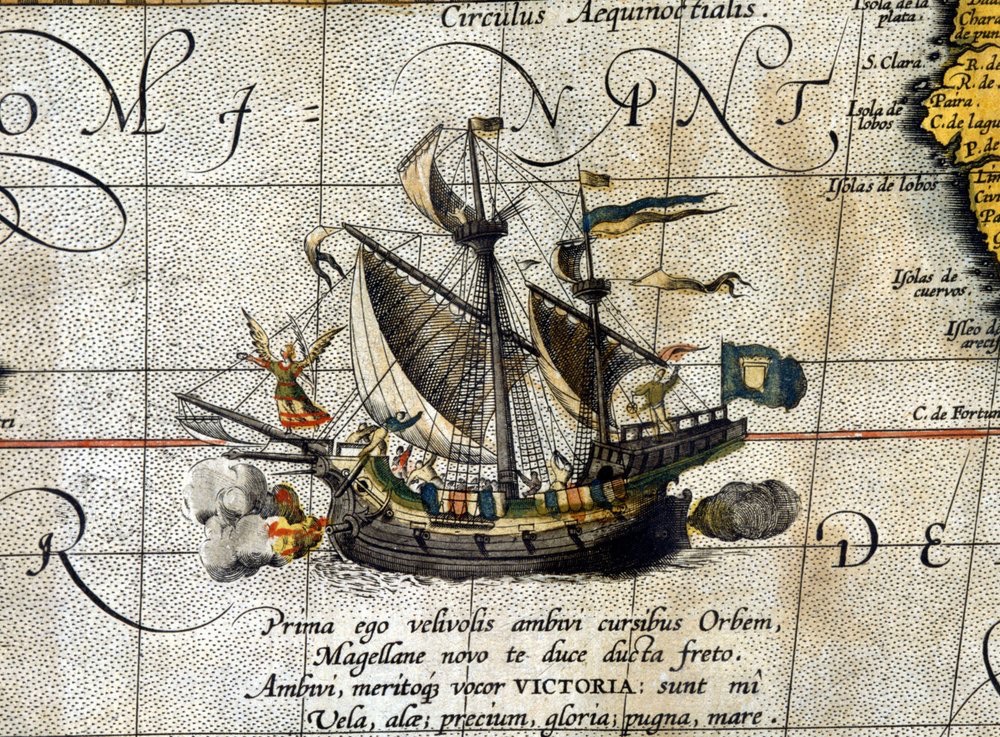 Circulus Aequinoctialis.
Isola de la
plata.
Chara
de pun
S. Clara.
R. de
R. de
Paira.
C. de lagu
P. de
Isola de
lobos
OMI=
NINT
Isolas de lobos
Lim
Civi
Pa
Isolas de
cuervos.
Isleo d
arecif
C. de Fortun
R
DE
Prima ego velivolis ambivi cursibus Orbem,
Magellane novo te duce ducta freto.
Ambivi, meritoqȝ vocor VICTORIA: sunt mî
Vela, alæ; precium, gloria; pugna, mare.